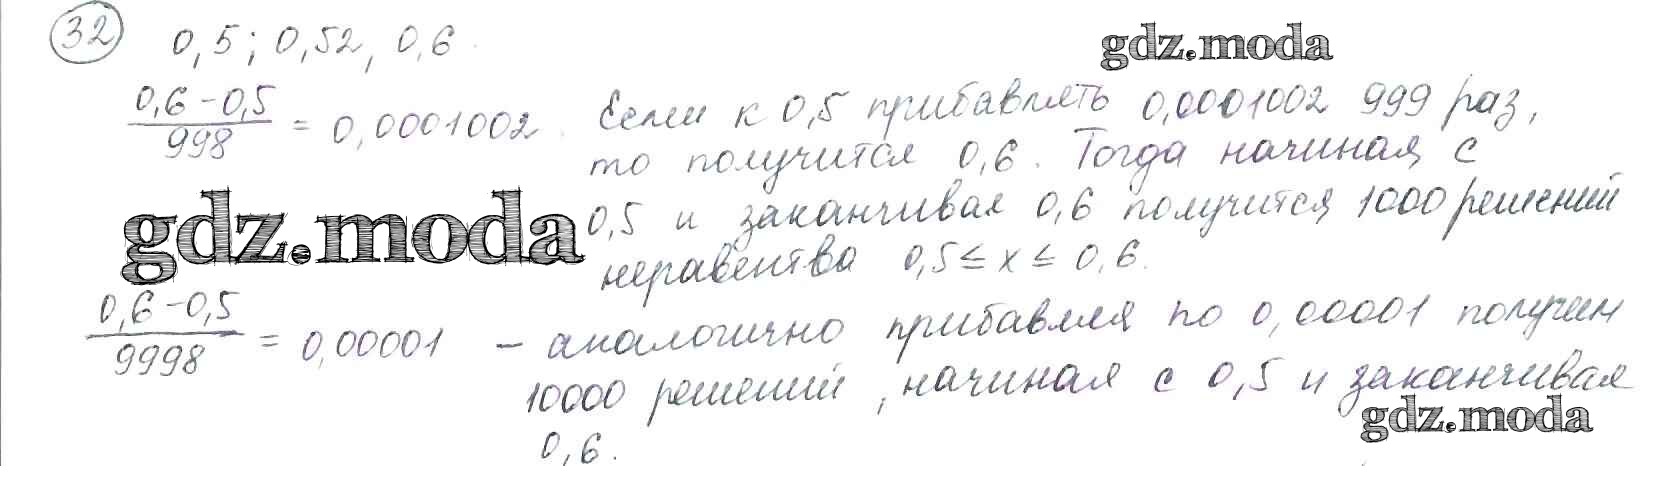 32 0,5; 0,52, 0,6.
gdz.moda
0,6-0,5
998
= 0,0001002. Если к 0,5 прибавлять 0,0001002 999 раз,
то получится 0,6. Тогда начиная с
gdz.moda
0,5 и заканчивая 0,6 получится 1000 решений
неравенства 0,5 ≤ x ≤ 0,6.
0,6-0,5
9998
= 0,00001 - аналогично прибавляя по 0,00001 получим
10000 решений, начиная с 0,5 и заканчивая
gdz.moda
0,6.